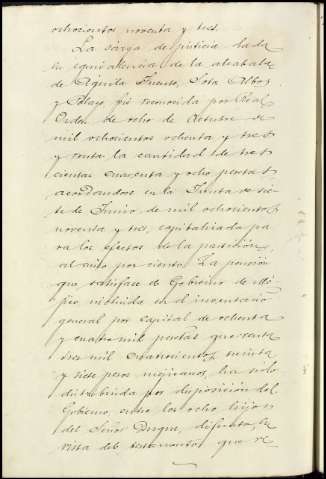 ochocientos noventa y tres.
La carga de justicia dada
en equivalencia de la alcabala
de Aguila Fuente, Sota Albos
y Pelayo, fué reconocida por Real
Orden de ocho de Octubre de
mil ochocientos ochenta y tres
y renta la cantidad de tres
cientas cuarenta y ocho pesetas
acordandose en la Junta de sie-
te de Junio de mil ochocientos
noventa y tres, capitalizada pa
ra los efectos de la particion,
al cinco por ciento. La pension
que satisface el Gobierno de Mé-
jico incluida en el inventario
general por capital de ochenta
y cuatro mil pesetas que renta
tres mil cuatrocientos, treinta
y siete pesos mejicanos, ha sido
distribuida por disposicion del
Gobierno, entre los ocho hijos
del Señor Duque, difunto, en
vista del testamento que se